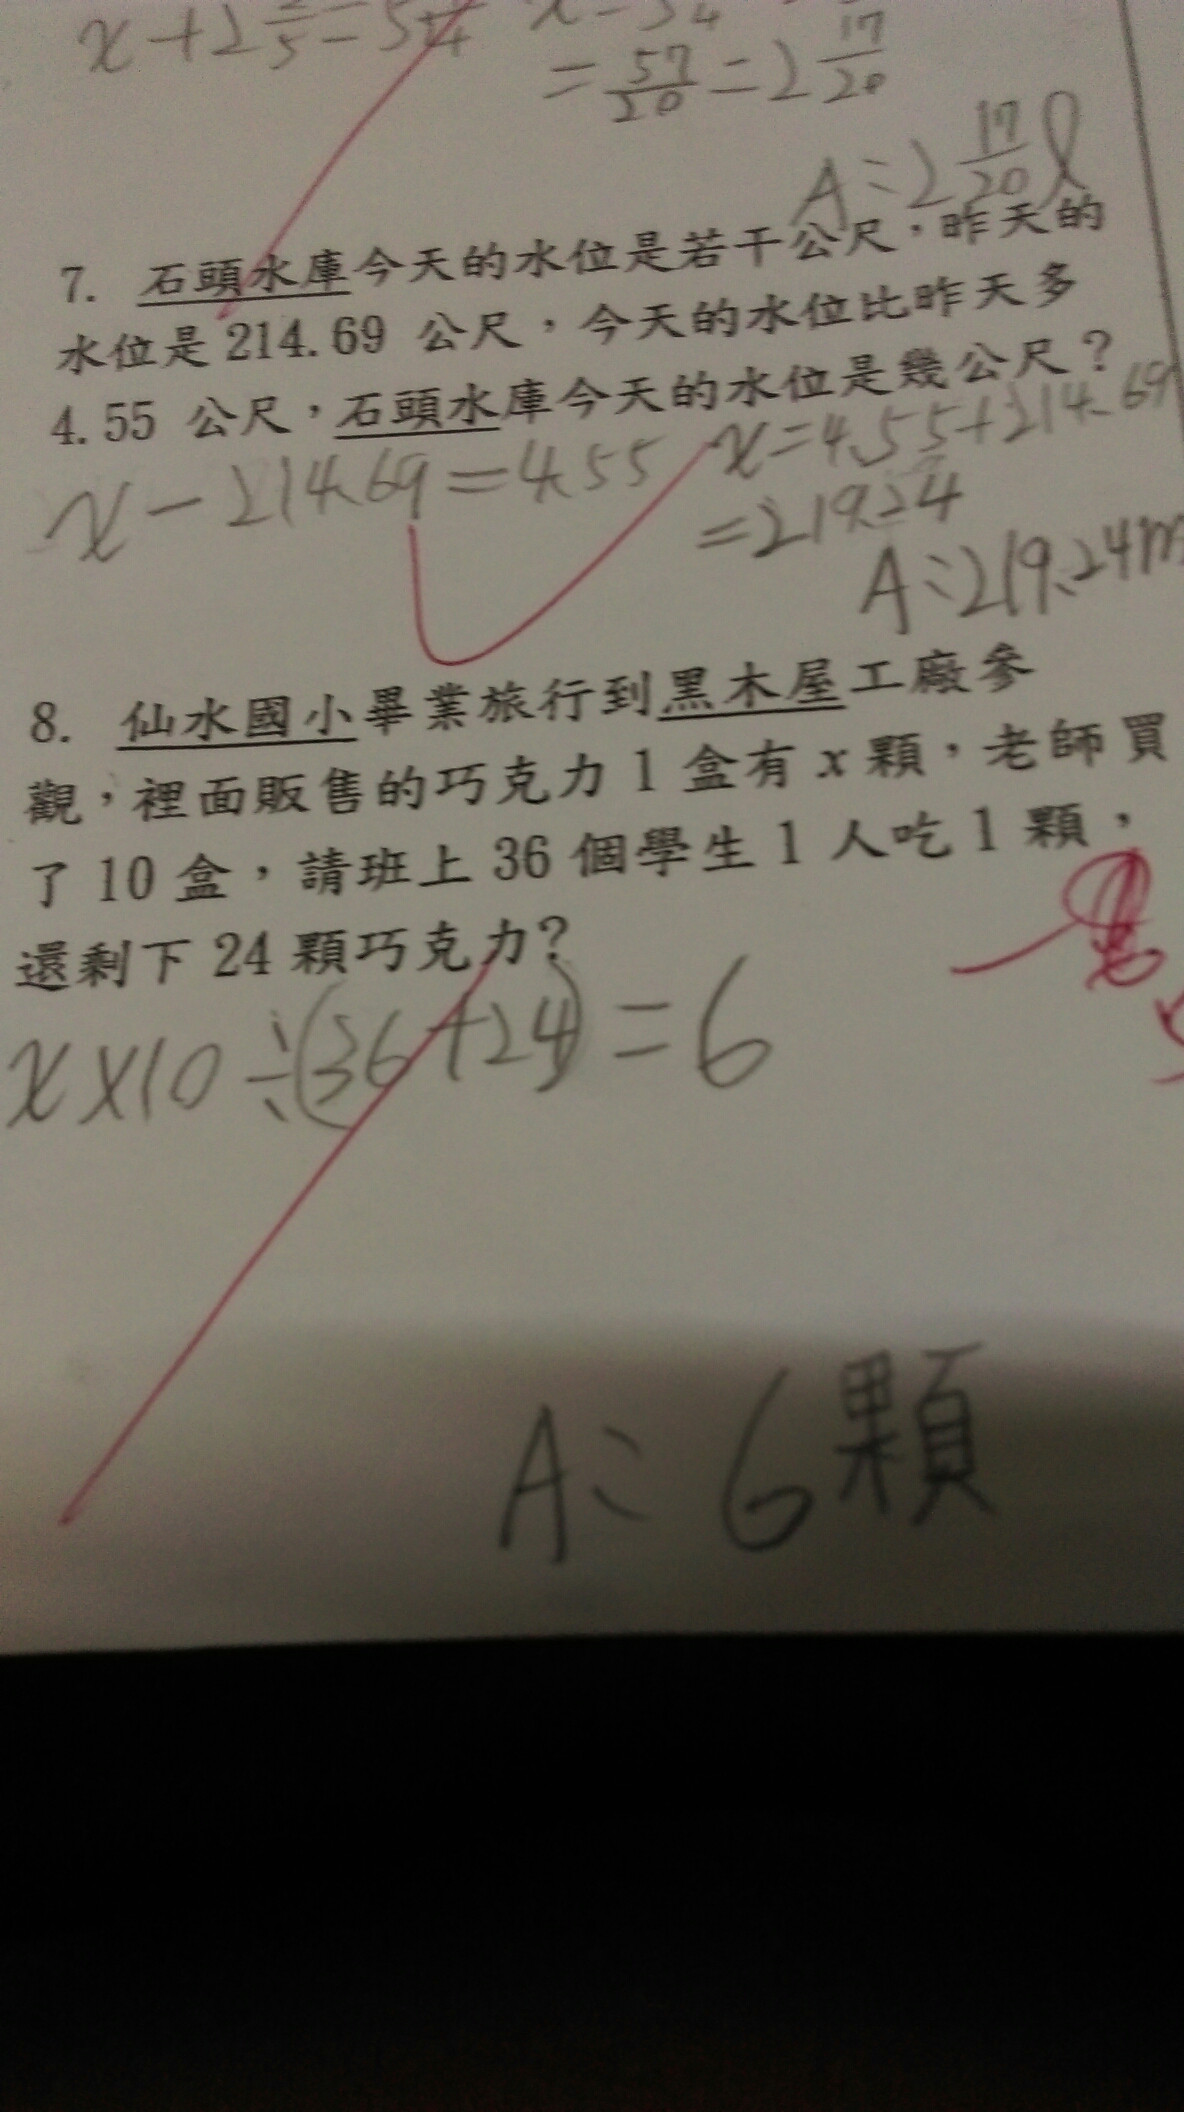 x+2 2/5=5
= 57/20 = 2 17/20
A:2 17/20 ℓ
7. 石頭水庫今天的水位是若干公尺，昨天的
水位是 214.69 公尺，今天的水位比昨天多
4.55 公尺，石頭水庫今天的水位是幾公尺？
x-214.69=4.55 x=4.55+214.69
=219.24
A:219.24m
8. 仙水國小畢業旅行到黑木屋工廠參
觀，裡面販售的巧克力 1 盒有 x 顆，老師買
了 10 盒，請班上 36 個學生 1 人吃 1 顆，
還剩下 24 顆巧克力?
x×10÷(36+24)=6
A:6顆